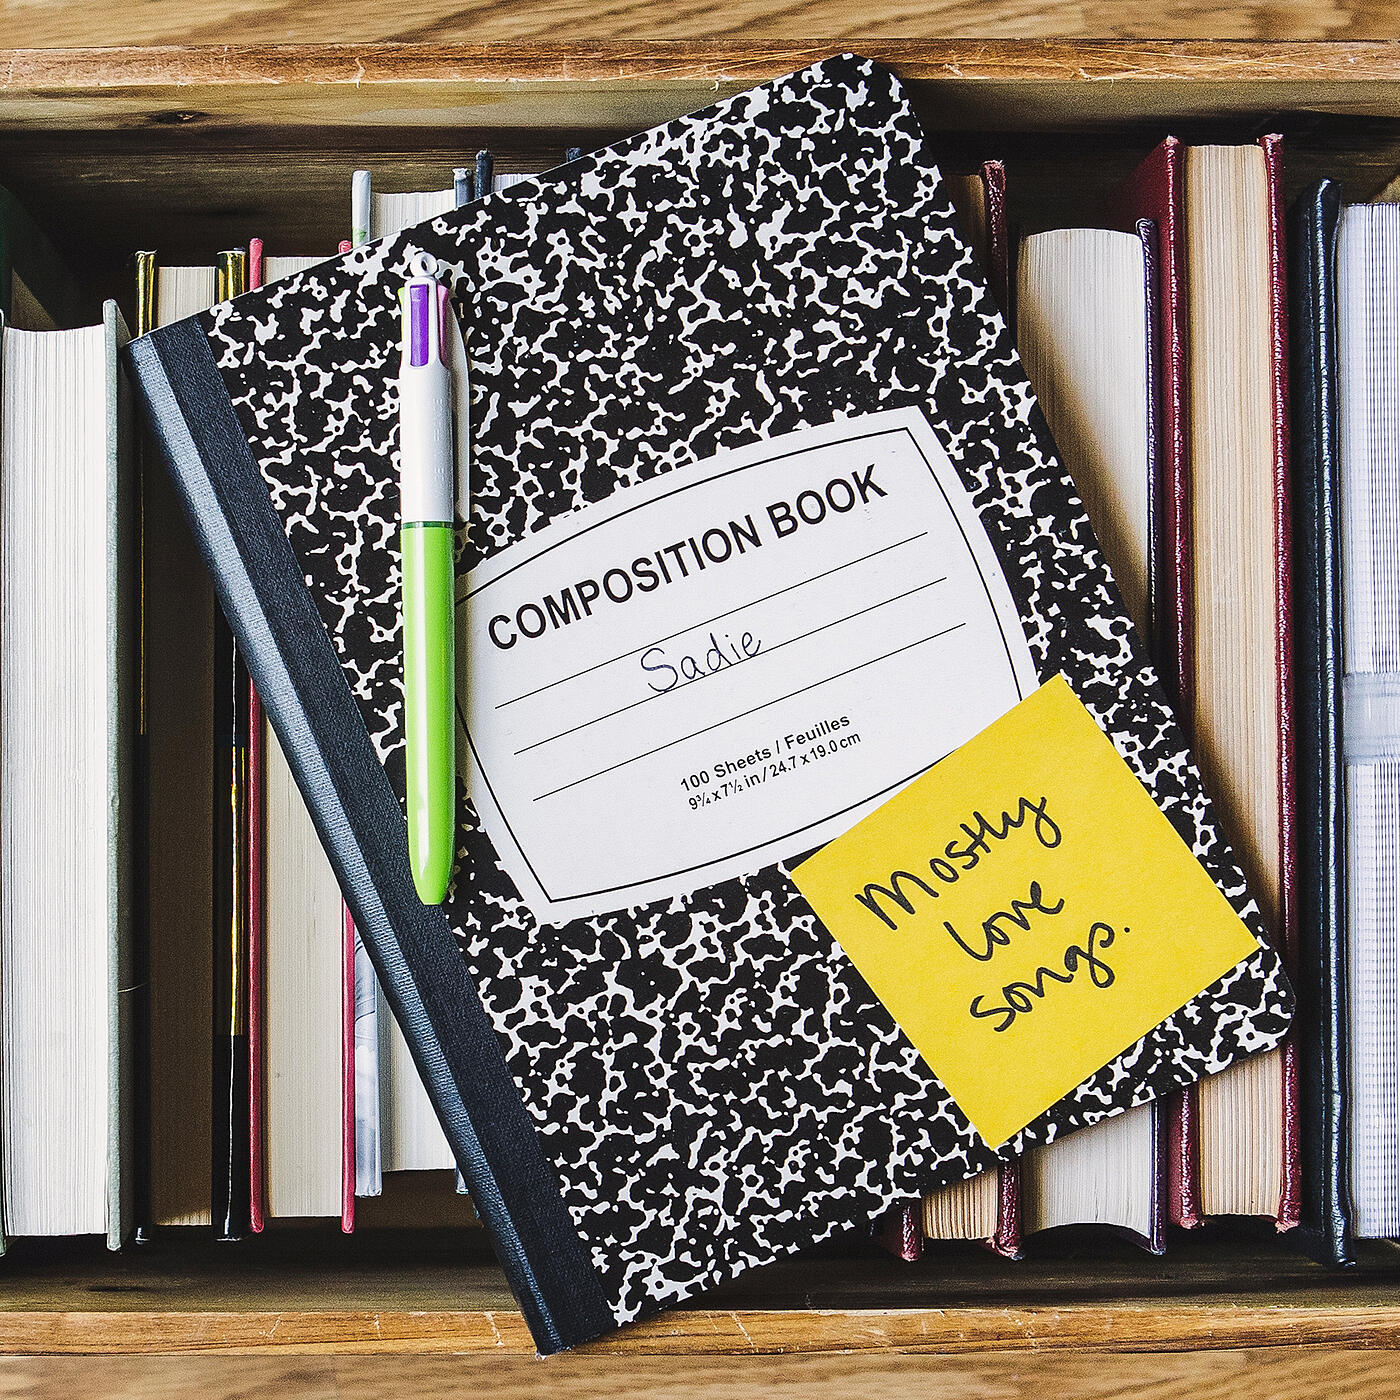 COMPOSITION BOOK
Sadie
100 Sheets / Feuilles
9¾ x 7½ in / 24.7 x 19.0 cm
Mostly
love
songs.